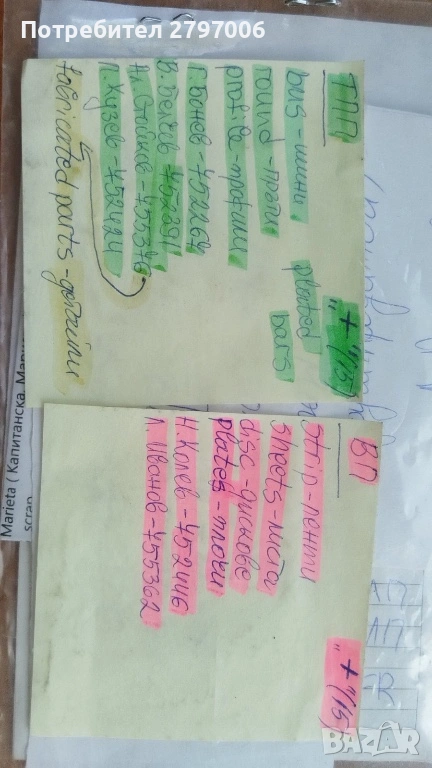 Потребител 2797006
ТПП
bus - шини
round - пръти
profile - профили
Г. Бонев - 452262
В. Белчев - 452291
Н. Стайков - 455376
П. Хузев - 452424
fabricated parts - детайли
plated
bars
"+"(15)
ВП
strip - ленти
sheets - листа
disc - дискове
plates - плочи
Н. Колев - 452446
Л. Иванов - 455362
"+"(15)
Marieta ( Капитанска, Мария
scrap
BAZAR